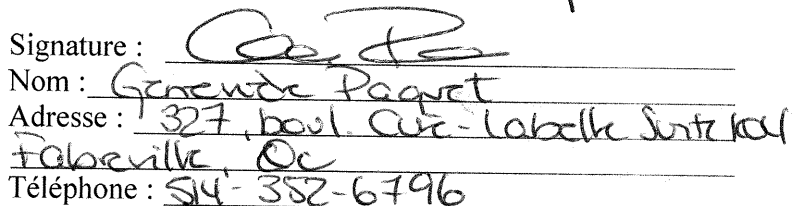 Signature :
Nom : Paquet
Adresse : 327, boul. Curé-Labelle Suite
Fabreville, Qc
Téléphone : 514-352-6796